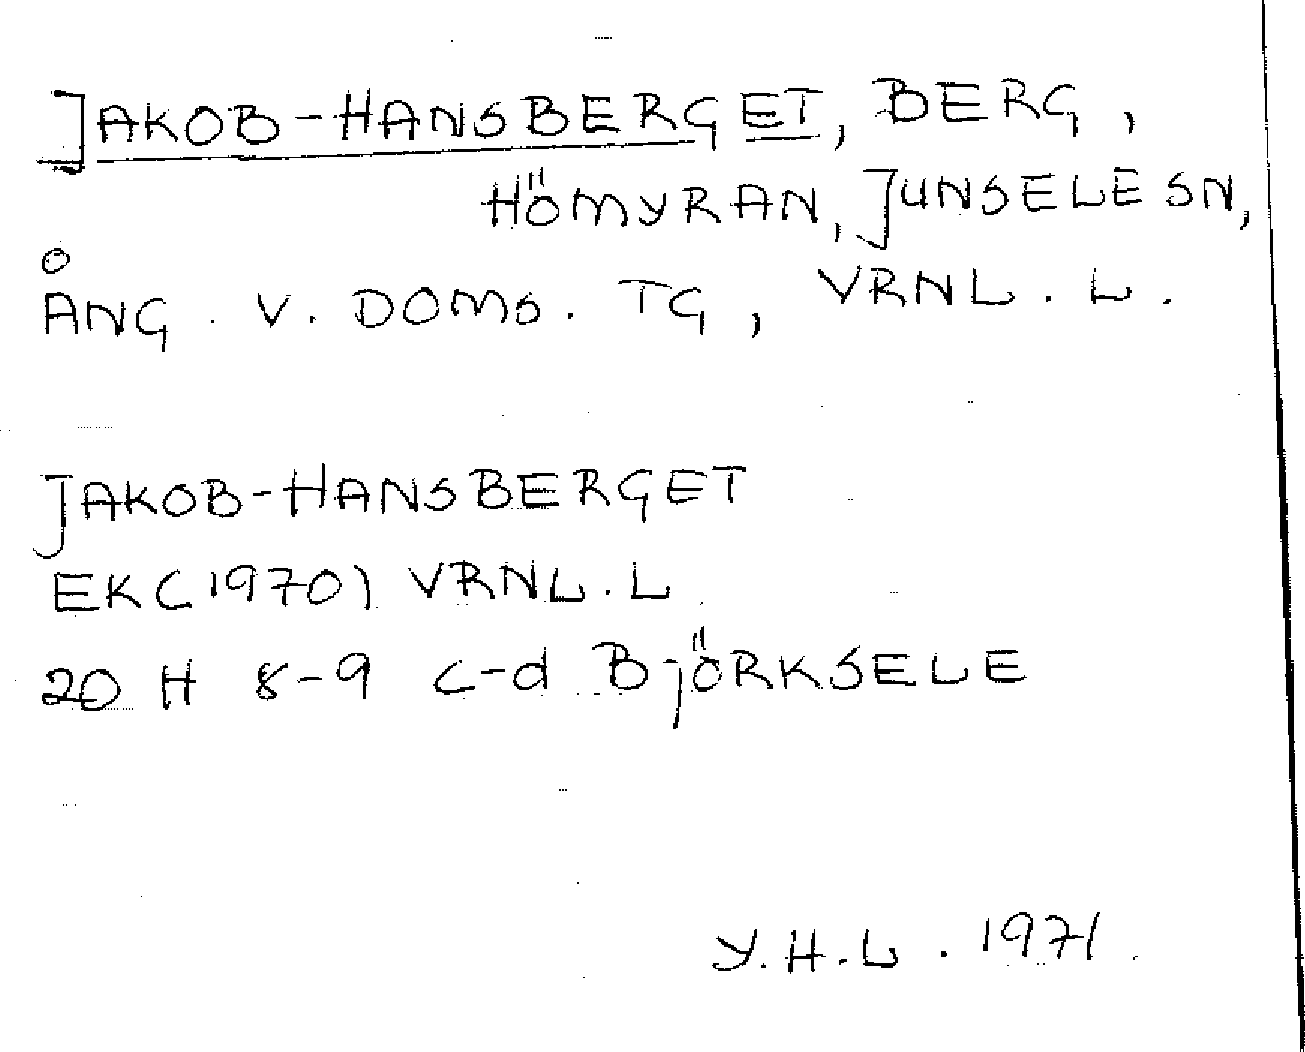 JAKOB-HANSBERGET, BERG,
HÖMYRAN, JUNSELE SN,
ÅNG. V. DOMS. TG, VRNL. L.
JAKOB-HANSBERGET
EK(1970) VRNL. L
20 H 8-9 c-d BJÖRKSELE
Y.H.L. 1971.